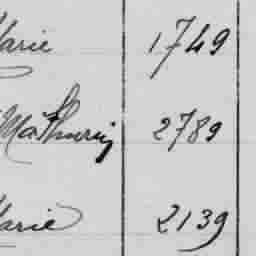 Marie 1749
Mathurin 2789
Marie 2139